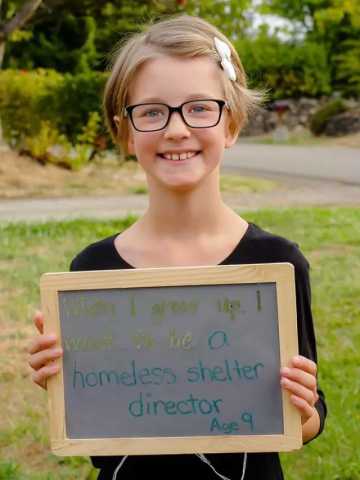 When I grow up, I
want to be a
homeless shelter
director
Age 9